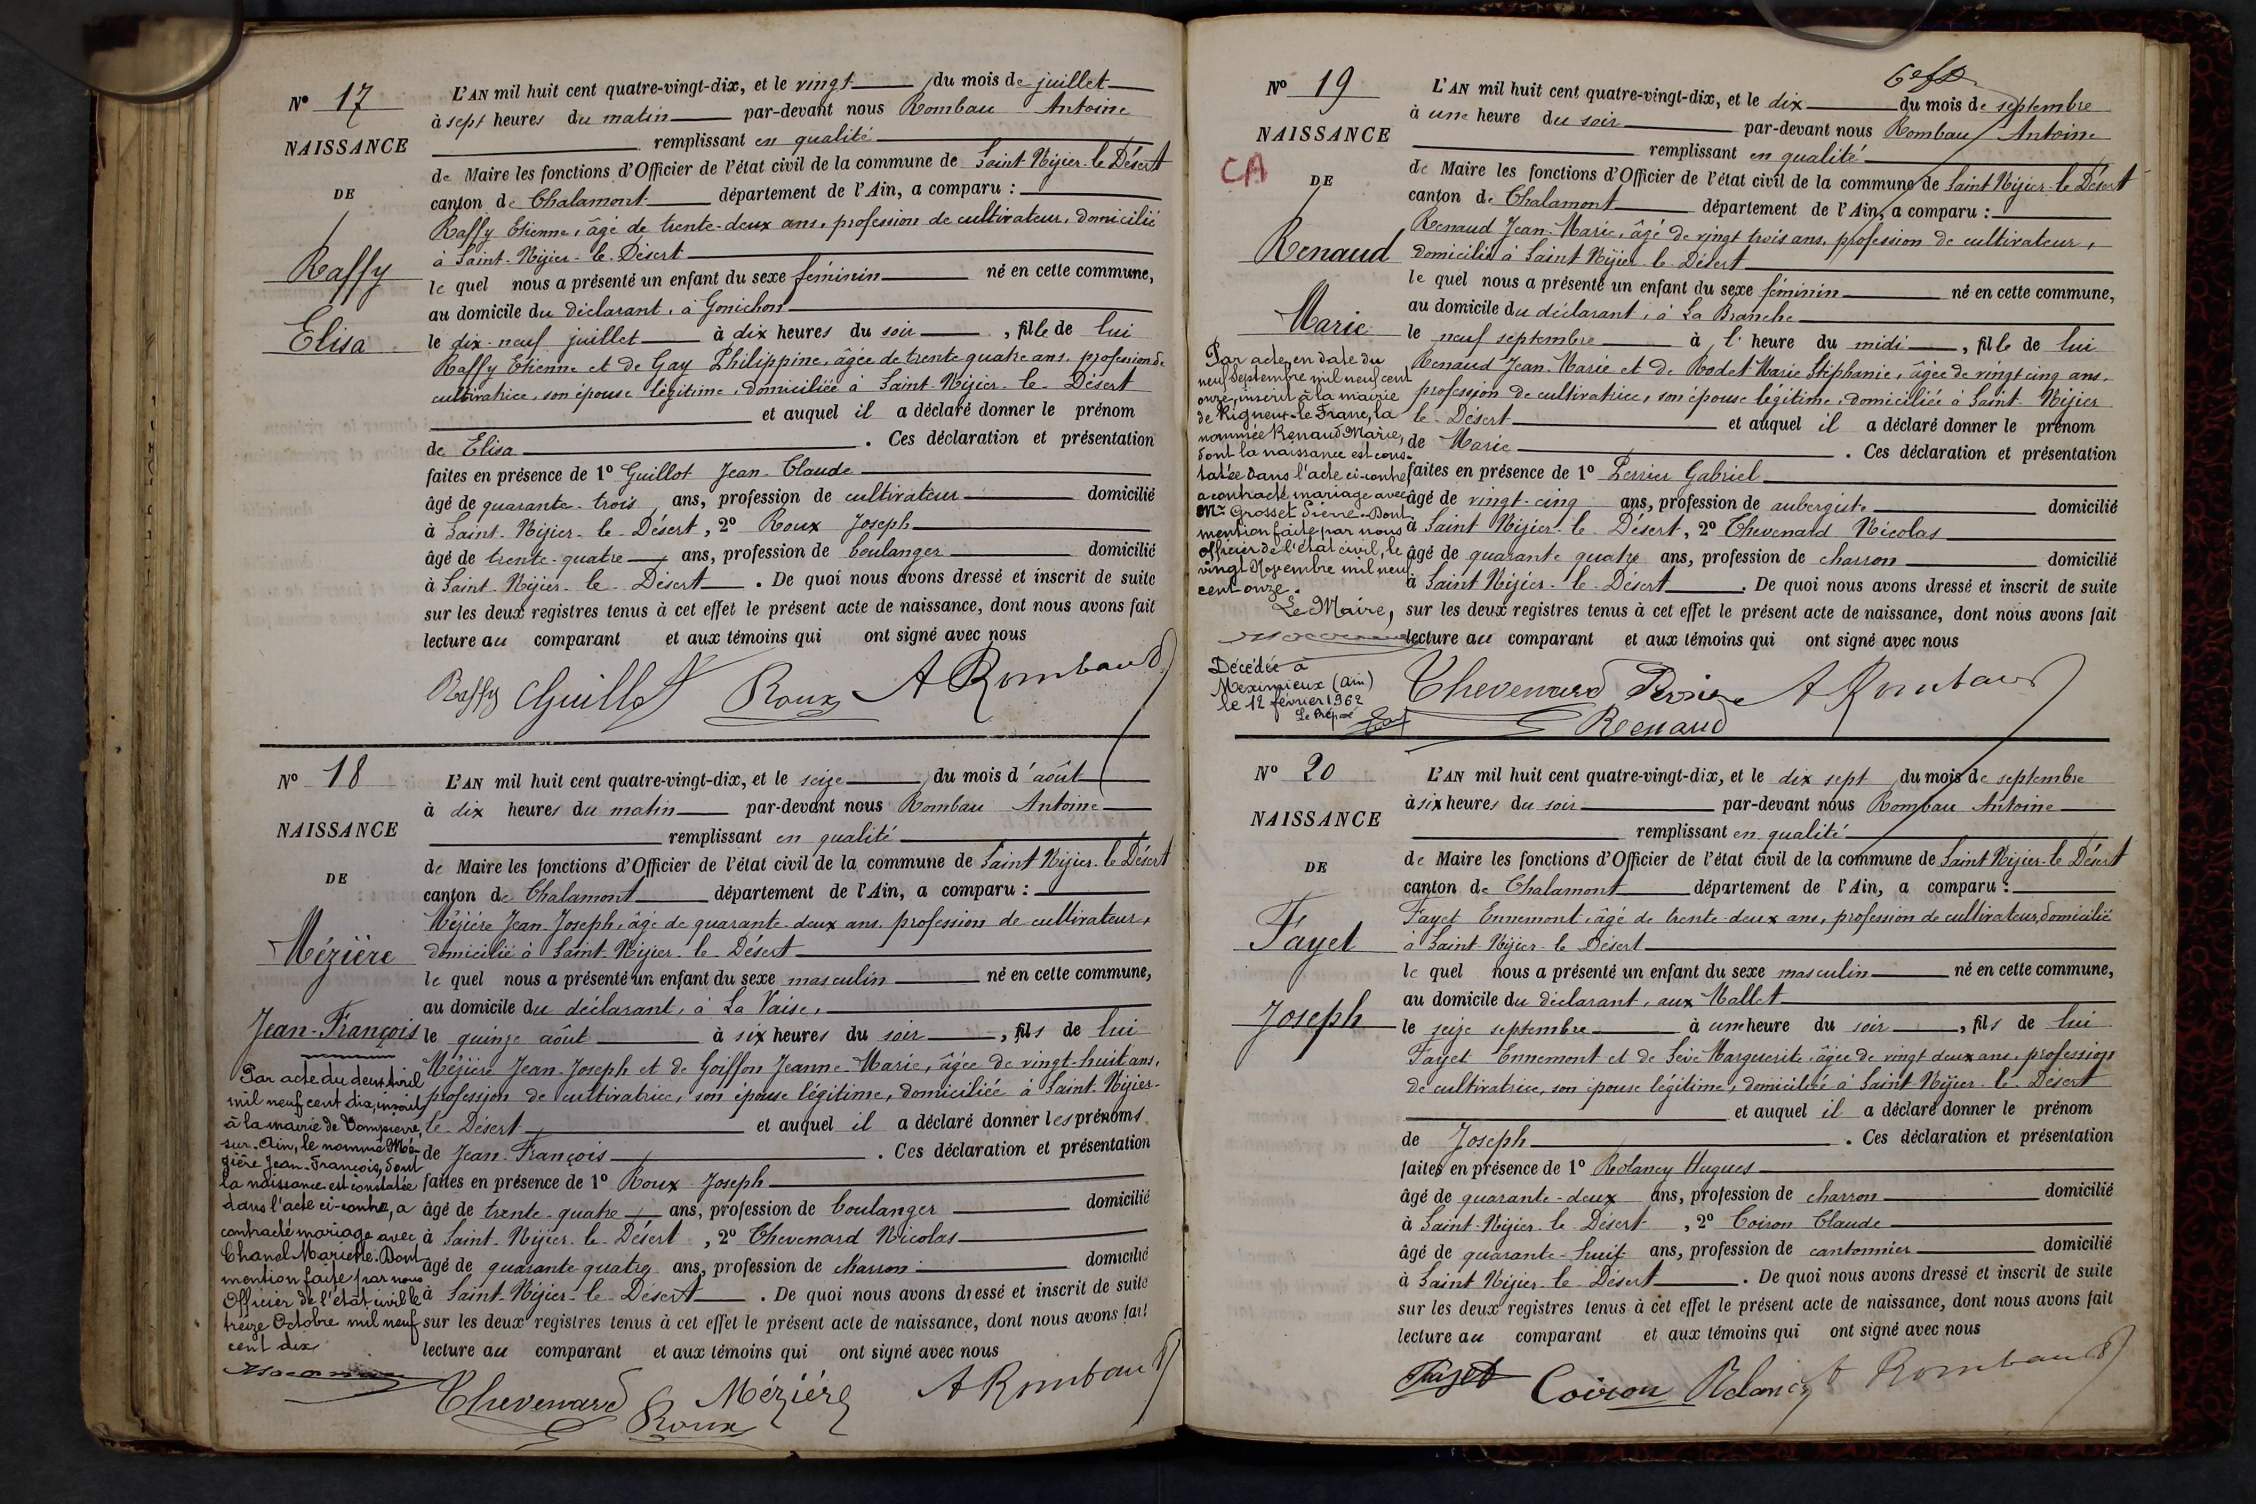 Nº 17
NAISSANCE
DE
Raffy
Elisa
L'AN mil huit cent quatre-vingt-dix, et le vingt du mois de juillet
à sept heures du matin par-devant nous Rombau Antoine
remplissant en qualité
de Maire les fonctions d'Officier de l'état civil de la commune de Saint Nizier-le Désert
canton de Chalamont département de l'Ain, a comparu :
Raffy Etienne, âgé de trente-deux ans, profession de cultivateur, domicilié
à Saint-Nizier-le-Désert
le quel nous a présenté un enfant du sexe féminin né en cette commune,
au domicile du déclarant, à Gonichon
le dix-neuf juillet à dix heures du soir, fille de lui
Raffy Etienne et de Gay Philippine, âgée de trente quatre ans, profession de
cultivatrice, son épouse légitime, domiciliée à Saint-Nizier-le-Désert
et auquel il a déclaré donner le prénom
de Elisa. Ces déclaration et présentation
faites en présence de 1º Guillot Jean-Claude
âgé de quarante-trois ans, profession de cultivateur domicilié
à Saint-Nizier-le-Désert, 2º Roux Joseph
âgé de trente-quatre ans, profession de boulanger domicilié
à Saint-Nizier-le-Désert. De quoi nous avons dressé et inscrit de suite
sur les deux registres tenus à cet effet le présent acte de naissance, dont nous avons fait
lecture au comparant et aux témoins qui ont signé avec nous
Raffy Guillot Roux A Rombaud
Nº 18
NAISSANCE
DE
Mézière
Jean-François
Par acte du deux Avril
mil neuf cent dix, inscrit
à la mairie de Dompierre
sur-Ain, le nommé Mé-
zière Jean-François, dont
la naissance est constatée
dans l'acte ci-contre, a
contracté mariage avec
Chanel Mariette. Dont
mention faite par nous
Officier de l'état civil le
treize Octobre mil neuf
cent dix
L'AN mil huit cent quatre-vingt-dix, et le seize du mois d'août
à dix heures du matin par-devant nous Rombau Antoine
remplissant en qualité
de Maire les fonctions d'Officier de l'état civil de la commune de Saint Nizier-le Désert
canton de Chalamont département de l'Ain, a comparu :
Mézière Jean Joseph, âgé de quarante-deux ans, profession de cultivateur,
domicilié à Saint-Nizier-le-Désert
le quel nous a présenté un enfant du sexe masculin né en cette commune,
au domicile du déclarant, à La Vaise,
le quinze août à six heures du soir, fils de lui
Mézière Jean-Joseph et de Goiffon Jeanne-Marie, âgée de vingt-huit ans,
profession de cultivatrice, son épouse légitime, domiciliée à Saint-Nizier-
le-Désert et auquel il a déclaré donner les prénoms
de Jean-François. Ces déclaration et présentation
faites en présence de 1º Roux Joseph
âgé de trente-quatre ans, profession de boulanger domicilié
à Saint-Nizier-le-Désert, 2º Thevenard Nicolas
âgé de quarante quatre ans, profession de charron domicilié
à Saint-Nizier-le-Désert. De quoi nous avons dressé et inscrit de suite
sur les deux registres tenus à cet effet le présent acte de naissance, dont nous avons fait
lecture au comparant et aux témoins qui ont signé avec nous
Thevenard Roux Mézière A Rombaud
Nº 19
NAISSANCE
CA
DE
Renaud
Marie
Par acte en date du
neuf Septembre mil neuf cent
onze, inscrit à la mairie
de Rigneux-le-Franc, la
nommée Renaud Marie,
dont la naissance est cons-
tatée dans l'acte ci-contre
a contracté mariage avec
Mr Grosset Pierre. Dont
mention faite par nous
Officier de l'état civil, le
vingt Novembre mil neuf
cent onze.
Le Maire,
Décédée à
Meximieux (Ain)
le 12 février 1962
Le Préposé
L'AN mil huit cent quatre-vingt-dix, et le dix du mois de septembre
à une heure du soir par-devant nous Rombau Antoine
remplissant en qualité
de Maire les fonctions d'Officier de l'état civil de la commune de Saint Nizier-le Désert
canton de Chalamont département de l'Ain, a comparu :
Renaud Jean-Marie, âgé de vingt trois ans, profession de cultivateur,
domicilié à Saint Nizier-le-Désert
le quel nous a présenté un enfant du sexe féminin né en cette commune,
au domicile du déclarant, à La Branche
le neuf septembre à l' heure du midi, fille de lui
Renaud Jean-Marie et de Rodet Marie Stéphanie, âgée de vingt cinq ans,
profession de cultivatrice, son épouse légitime, domiciliée à Saint-Nizier
le-Désert et auquel il a déclaré donner le prénom
de Marie. Ces déclaration et présentation
faites en présence de 1º Perrier Gabriel
âgé de vingt-cinq ans, profession de aubergiste domicilié
à Saint Nizier-le-Désert, 2º Thevenard Nicolas
âgé de quarante quatre ans, profession de charron domicilié
à Saint Nizier-le-Désert. De quoi nous avons dressé et inscrit de suite
sur les deux registres tenus à cet effet le présent acte de naissance, dont nous avons fait
lecture au comparant et aux témoins qui ont signé avec nous
Thevenard Perrier A Rombaud
Renaud
Nº 20
NAISSANCE
DE
Fayet
Joseph
L'AN mil huit cent quatre-vingt-dix, et le dix sept du mois de septembre
à six heures du soir par-devant nous Rombau Antoine
remplissant en qualité
de Maire les fonctions d'Officier de l'état civil de la commune de Saint Nizier-le Désert
canton de Chalamont département de l'Ain, a comparu :
Fayet Ennemont, âgé de trente-deux ans, profession de cultivateur, domicilié
à Saint-Nizier-le Désert
le quel nous a présenté un enfant du sexe masculin né en cette commune,
au domicile du déclarant, aux Mallet
le seize septembre à une heure du soir, fils de lui
Fayet Ennemont et de Sève Marguerite, âgée de vingt deux ans, profession
de cultivatrice, son épouse légitime, domiciliée à Saint-Nizier-le-Désert
et auquel il a déclaré donner le prénom
de Joseph. Ces déclaration et présentation
faites en présence de 1º Rolancy Hugues
âgé de quarante-deux ans, profession de charron domicilié
à Saint-Nizier-le Désert, 2º Coiron Claude
âgé de quarante-huit ans, profession de cantonnier domicilié
à Saint Nizier-le-Désert. De quoi nous avons dressé et inscrit de suite
sur les deux registres tenus à cet effet le présent acte de naissance, dont nous avons fait
lecture au comparant et aux témoins qui ont signé avec nous
Fayet Coiron Rolancy A Rombaud